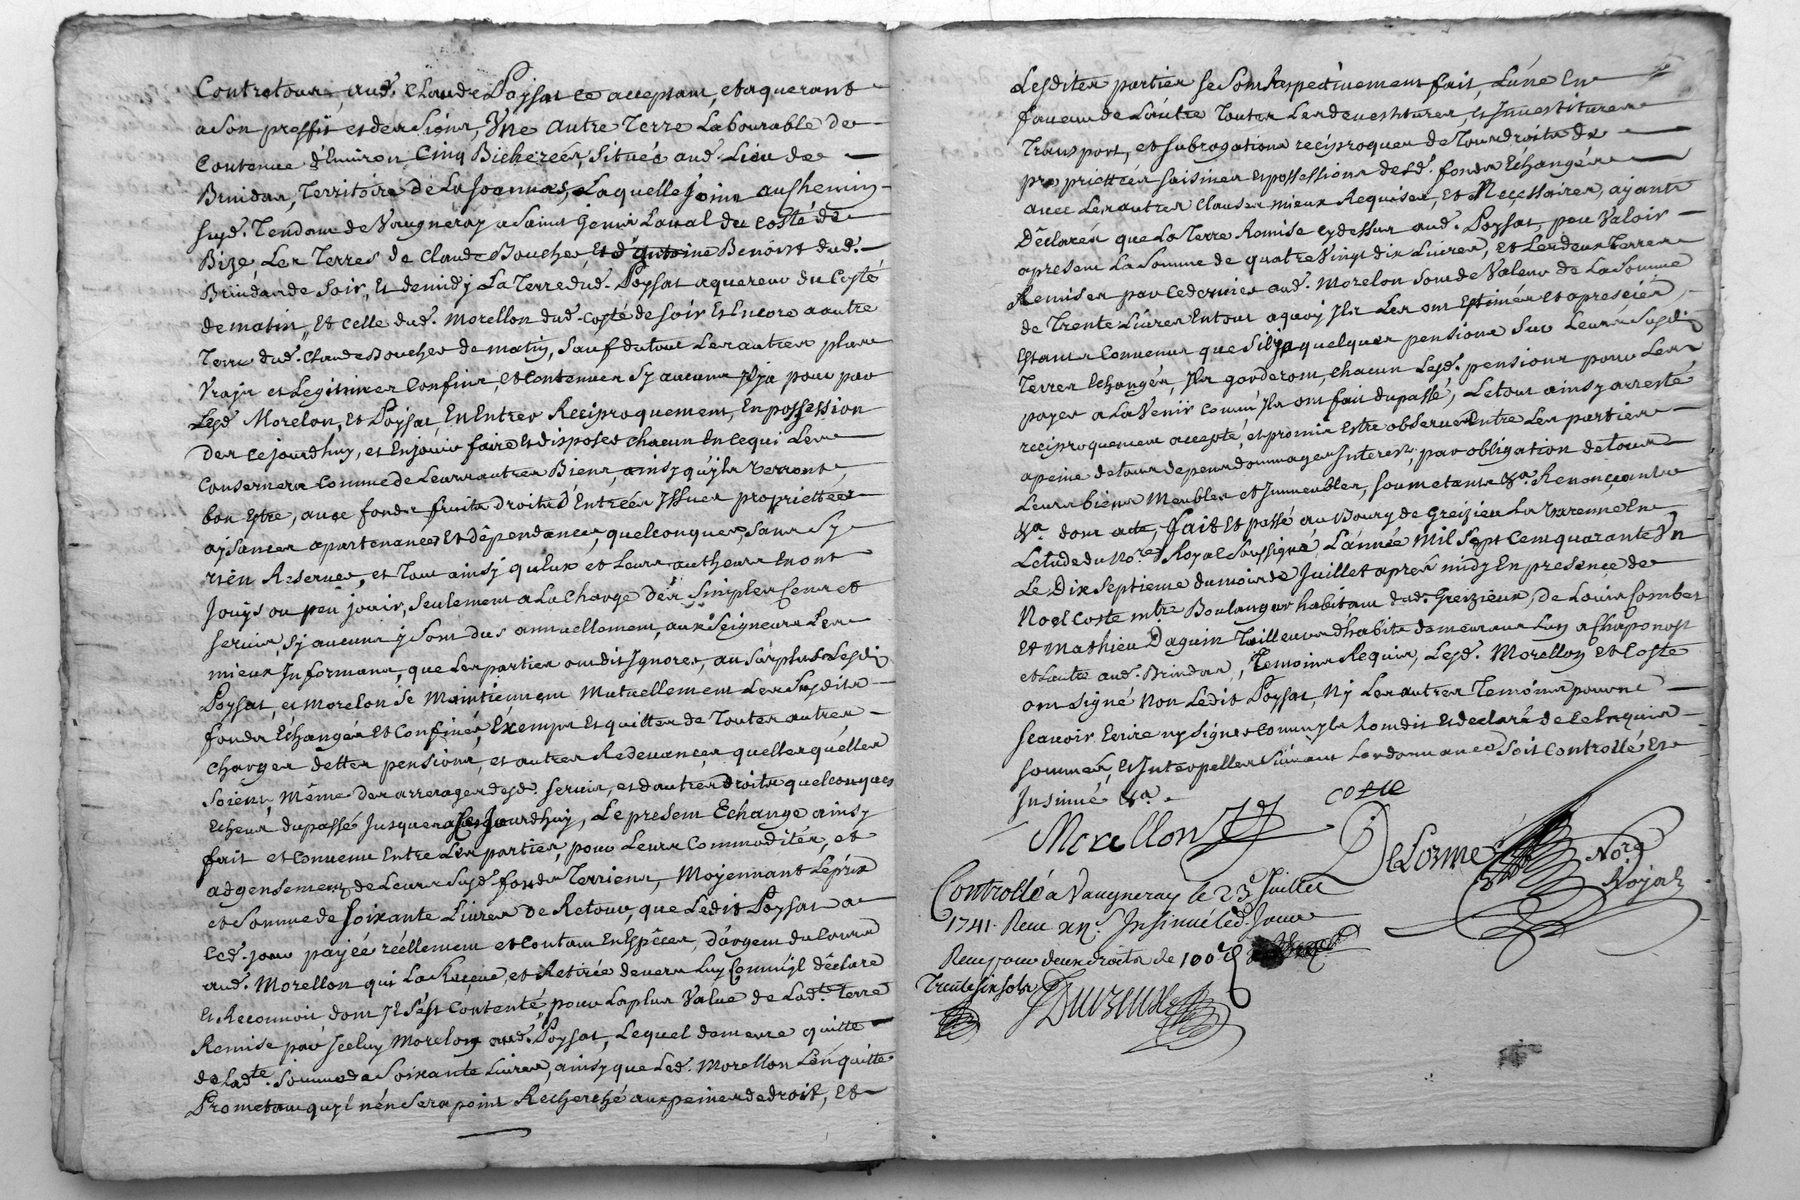 Contretour, aud. Claude Poysat ce acceptant, et aquerant
a son proffit et des siens, Vne autre Terre Labourable de
Contenue d'Enuiron Cinq Bicherées, Situés aud. Lieu de
Brindas, Territoire de La Joannas, Laquelle Joint au Chemin
susd. Tendant de Vaugneray a Saint Genis Laual du Costé de
Bize, Les Terres de Claude Boucher, Et d'Antoine Benoist dud.
Brindas de Soir, Et de midy La Terre dud. Poysat aquereur du Costé
de matin, Et Celle dud. Morellon dud. Costé de Soir Et Encore a autre
Terre dud. Claude Boucher de matin, Sauf du tout Les autres plus
Vrays et Legitimes Confins, et Contenues Sy aucuns Il y a pour par
Lesd. Morelon, Et Poysat En Entrer Reciproquement, En possession
des ce jourdhuy, et En jouir faire Et disposer Chacun En Ce qui Les
Consernera Comme de Leurs autres Biens, ainsy qu'jls Verront,
bon Estre, auec fonds fruits droits d'Entrées Issues proprietées
aysances apartenances Et dépendances, quelconques, Sans Sy
rien Reseruer, et Tout ainsy qu'Eux et Leurs autheurs En ont
Jouys ou peu jouir, Seulement a La Charge des Simples Cens et
seruis, Sy aucuns y Sont dus annuellement, aux Seigneurs Les
mieux Informans, que Les parties ont dit Ignorer, au Surplus Lesdits
Poysat, et Morelon Se Maintiennent Mutuellement Les Susdits
fonds Echangés Et Confinés, Exempts Et quittes de Toutes autres
Charges dettes pensions, et autres Redeuances, quelles quelles
Soient, Même des arrerages desd. seruis, et d'autres Droits quelconques
Echeus du passé Jusques a Ce Jourdhuy, Le present Echange ainsy
fait et Conuenu Entre Les parties, pour Leurs Commodités, et
adgensement de Leurs Susd. fonds Terriens, Moyennant Le prix
et Somme de Soixante Liures de Retour, que Ledit Poysat a
Ced. jour payée réellement et Contant En Espêces, d'argent du Cours
aud. Morellon qui La Reçue, et Retirée deuers Luy Comm'jl déclare
Et Reconnoit dont Jl S'est Contenté, pour La plus Value de Lad.te Terre
Remise par Jceluy Morelon aud. Poysat, Lequel demeure quitte
de Lad.te Somme de Soixante Liures, ainsy que Led. Morellon L'en quitte
Promettant qu'jl n'en Sera point Recherché aux peines de droit, Et
Lesdites parties Se Sont Respectiuement fait, L'une En
faueur de L'autre Toutes Les deuestitures, et Inuestitures
Transport, et Subrogations reciproques de Tous droits de
proprietées saisines et possessions desd. fonds Echangés
auec Les autres Clauses mieux Requises, Et Necessaires, ajant
Déclarés que La Terre Remise Cy dessus aud. Poysat, peu Valoir
apresent La Somme de quatre Vingt dix Liures, Et Les deux Terres
Remises par Ce dernier aud. Morelon Sont de Valeur de La Somme
de Trente Liures En tout a quoy Jls Les ont Estimées Et apresciées,
Estants Conuenus que S'il y a quelques pensions Sur Leurs Susdits
Terres Echangés, Jls garderont, Chacun Lesd. pensions pour Les
payer a La Venir Comm'Jls ont fait du passé, Le tout ainsy arresté
reciproquement accepté, et promis Estre obserué Entre Les parties
a peine de tous depens dommages Interest, par obligation de tous
Leurs biens Meubles et Immeubles, Soumetants &a. Renonçants
&a. dont acte, fait Et passé au Bourg de Greizieu La Varenne En
L'etude du No.re Royal Soussigné, L'année Mil Sept Cent quarante Vn
Le Dix Septieme du mois de Juillet apres midy En presence de
Noel Coste m.tre Boulanger habitant dud. Greizieux, de Louis Combet
Et Mathieu Daguin Tailleurs d'habits demeurans L'un a Chaponost
et L'autre aud. Brindas, Temoins Requis, Lesd. Morellon Et Coste
ont Signé Non Ledit Poysat, Ny Les autres Temoins pour ne
Scauoir Ecrire ny Signer Comm'jls L'ont dit Et declaré de Ce Enquis
Sommés, Et Interpellés Suiuant Lordonnance Soit Controllé Et
Insinué &a.
Coste
Morellon
DeLorme Nore
Royal
Controllé a Vaugneray le 23 Juillet
1741. Reçu Insinué led. Jour
Reçu pour deux droits de 100e
Trente six sols